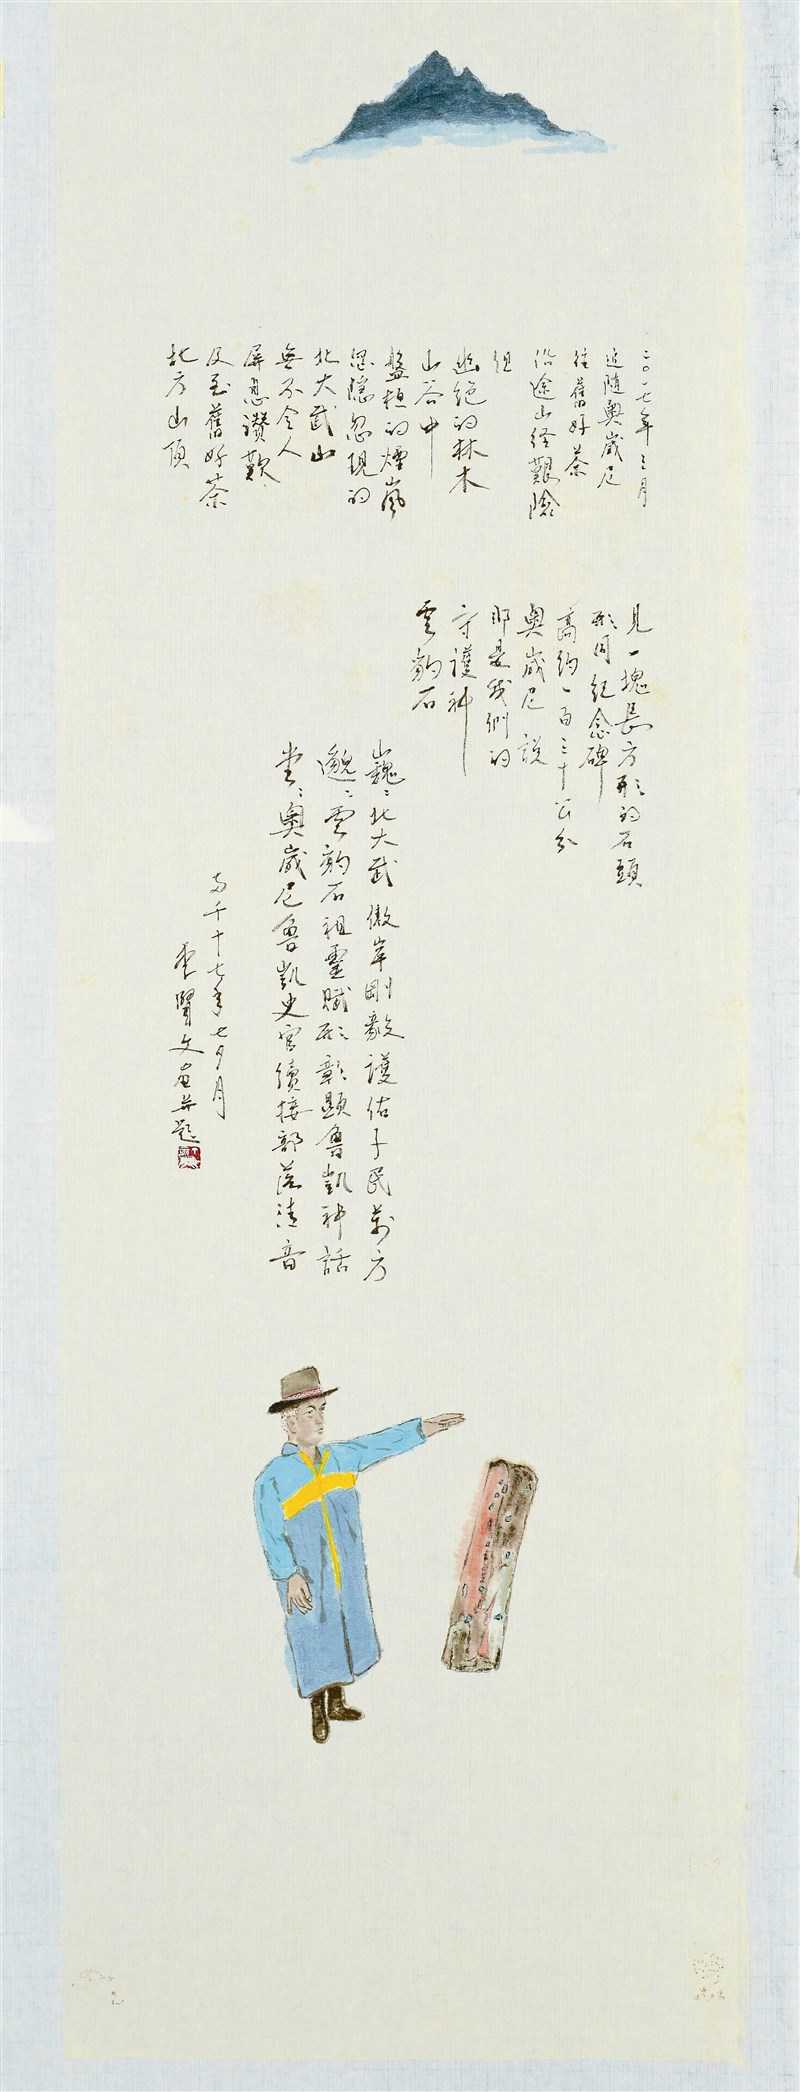 二〇一七年三月
追隨奧崴尼
往舊好茶
沿途山徑艱險
但
幽絕的林木
山谷中
盤桓的煙嵐
忽隱忽現的
北大武山
無不令人
屏息讚歎
及至舊好茶
北方山頂
見一塊長方形的石頭
形同紀念碑
高約一百三十公分
奧崴尼說
那是我們的
守護神
雲豹石
巍々北大武傲岸剛毅護佑子民萬方
邈々雲豹石祖靈賦形彰顯魯凱神話
堂々奧崴尼魯凱史官續接部落清音
兩千十七年七夕月
李賢文畫并題